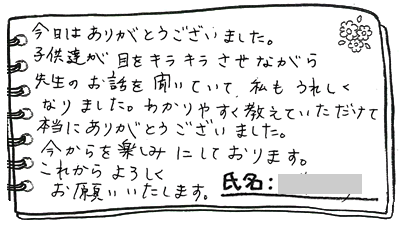 今日はありがとうございました。
子供達が目をキラキラさせながら
先生のお話を聞いていて、私もうれしく
なりました。わかりやすく教えていただけて
本当にありがとうございました。
今からを楽しみにしております。
これからよろしく
お願いいたします。
氏名：